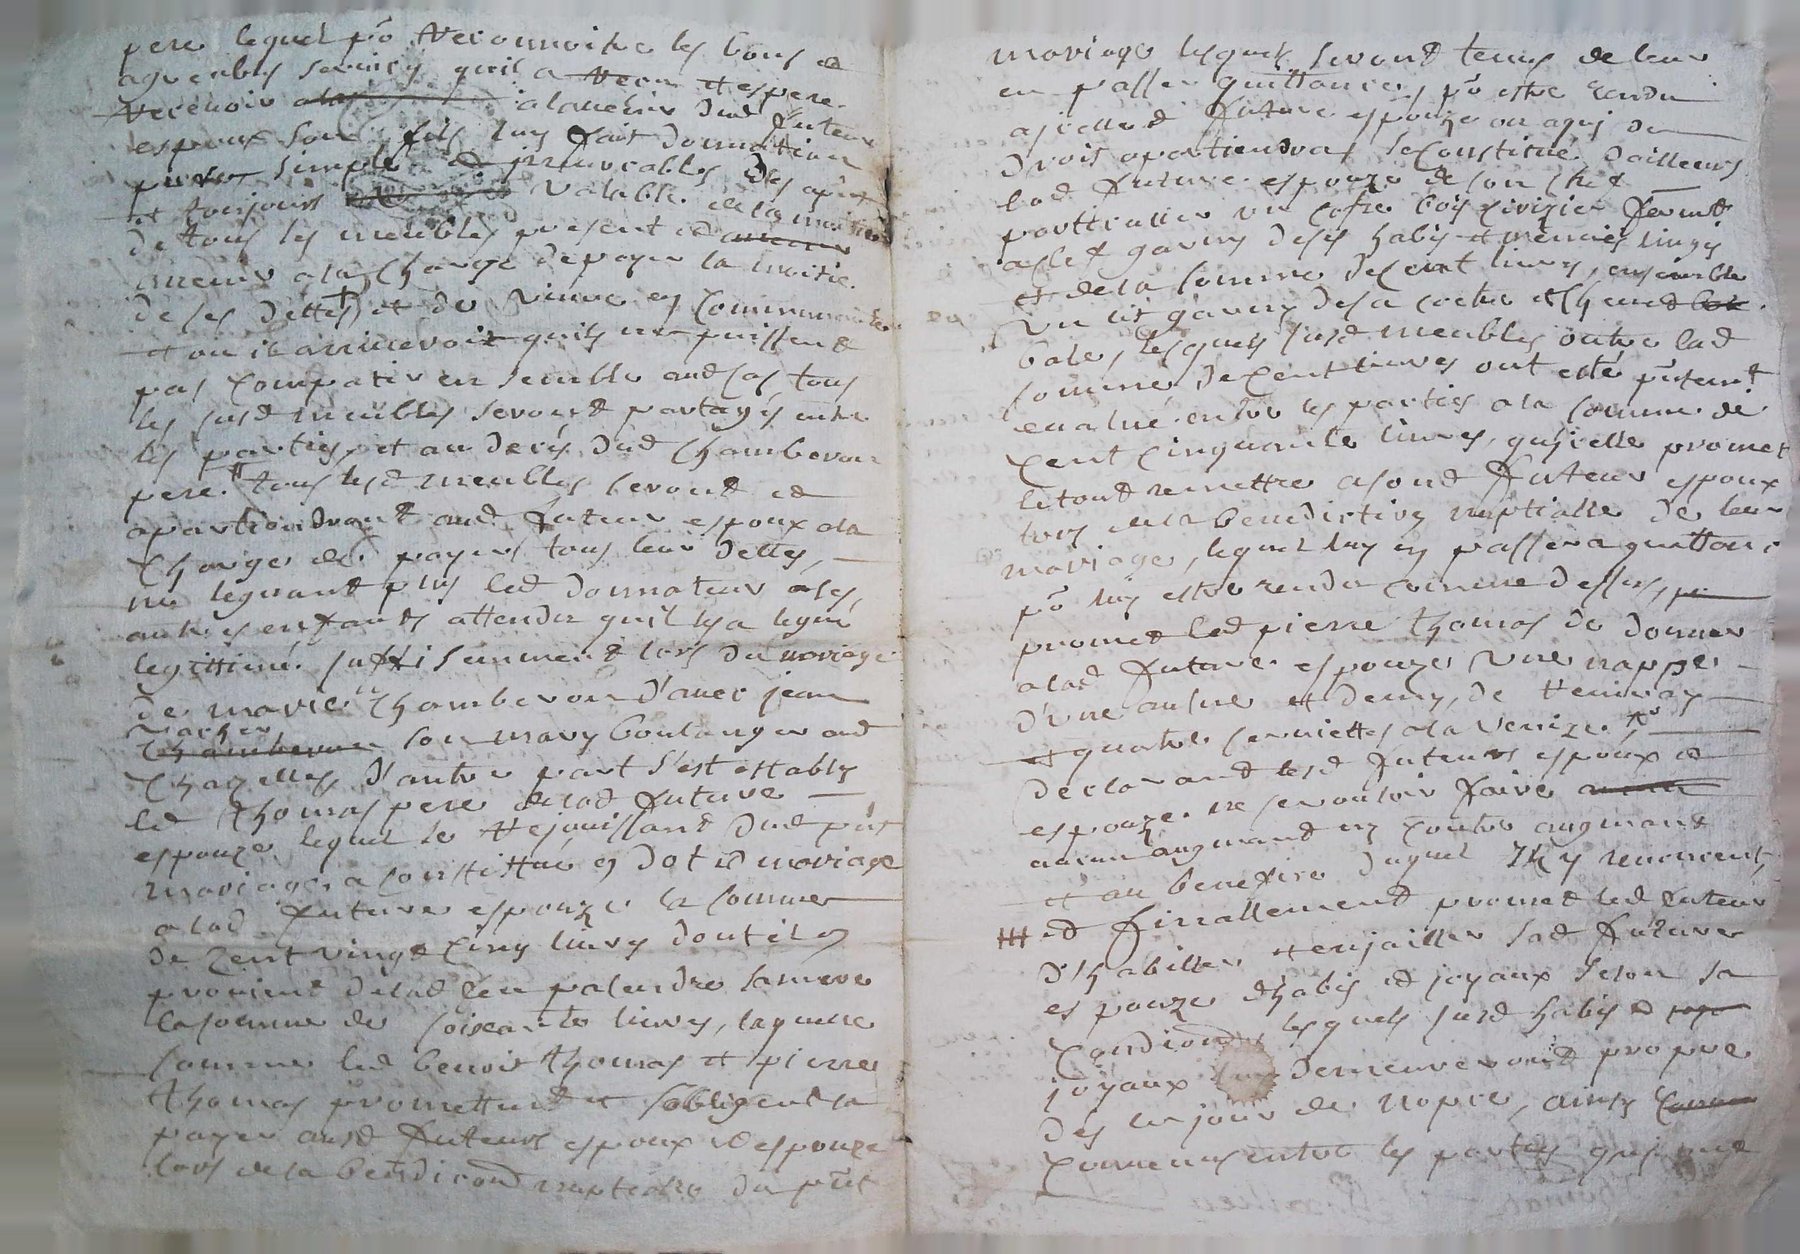 pere lequel po reconnoitre les bons et
agreables services quil a receu et espere
recevoir a ladvenir dud futeur
espoux son fils luy fait donnation
pure simple et irrevocables des apnt
et tousjours valable de la moitie
de tous les meubles present et
avenir a la charge de payer la moitie
de ses dettes et de vivre en communauté
et ou il arriveroit quils ne puissent
pas compatir ensemble aud cas tous
les susd meubles seront partagés entre
les parties, et au decés dud Chamberon
pere tous lesd meubles seront et
apartiendront aud futeur espoux a la
charge de payer tous leur dettes,
ne leguant plus led donnateur a ses
autres enfants attendu quil les a legué
legittimé suffisemment lors du mariage
de marie Chamberon d'avec jean
vacher
Chamberon son mary boulanger aud
Chazelles, d'autre part s'est estably
led thomas pere de lad future
espouze lequel se rejouissant dud pnt
mariage a constittué en dot et mariage
a lad future espouze la somme
de cent vingt cinq livres dont il en
provient de lad feu palendre sa mere
la somme de soiscante livres, laquelle
somme led benoit thomas et pierre
thomas promettent et sobligent la
payer ausd futeurs espoux et espouze
lors de la benedicond nuptialle du pnt
mariage lesquels seront tenus de leur
en passer quittance, po estre rendu
a jcelle future espouze ou a qui de
droit apartiendra, se constitue dailleurs
lad future espouze de son chef
particulier un cofre bois cerizier fermt
a clef garny de ses habis et menus linges
et de la somme de cent livres, ensemble
un lit garny de sa coetre et
bales, lesquels susd meubles outre lad
somme de cent livres ont esté pntemt
evalué entre les parties a la somme de
cent cinquante livres, qujcelle promet
le tout remettre a sond futeur espoux
lors de la benediction nuptialle de leur
mariage, lequel luy en passera quittance
po luy estre rendu comme dessus,
promet led pierre thomas de donner
a lad future espouze une nappe
d'une aulne et demy, de
et quatre serviettes a la Venize
declarant lesd futeurs espoux et
espouze ne se vouloir faire
aucun augmant ny contre augmant
et au benefice duquel Ils y renoncent,
et finallement promet led futeur
d'habiller et enjoailler lad future
espouze d'habis et joyaux selon sa
condiond, lesquels susd habis et
joyaux demeureront propre
des le jour de nopce, ainsy
convenus entre les parties